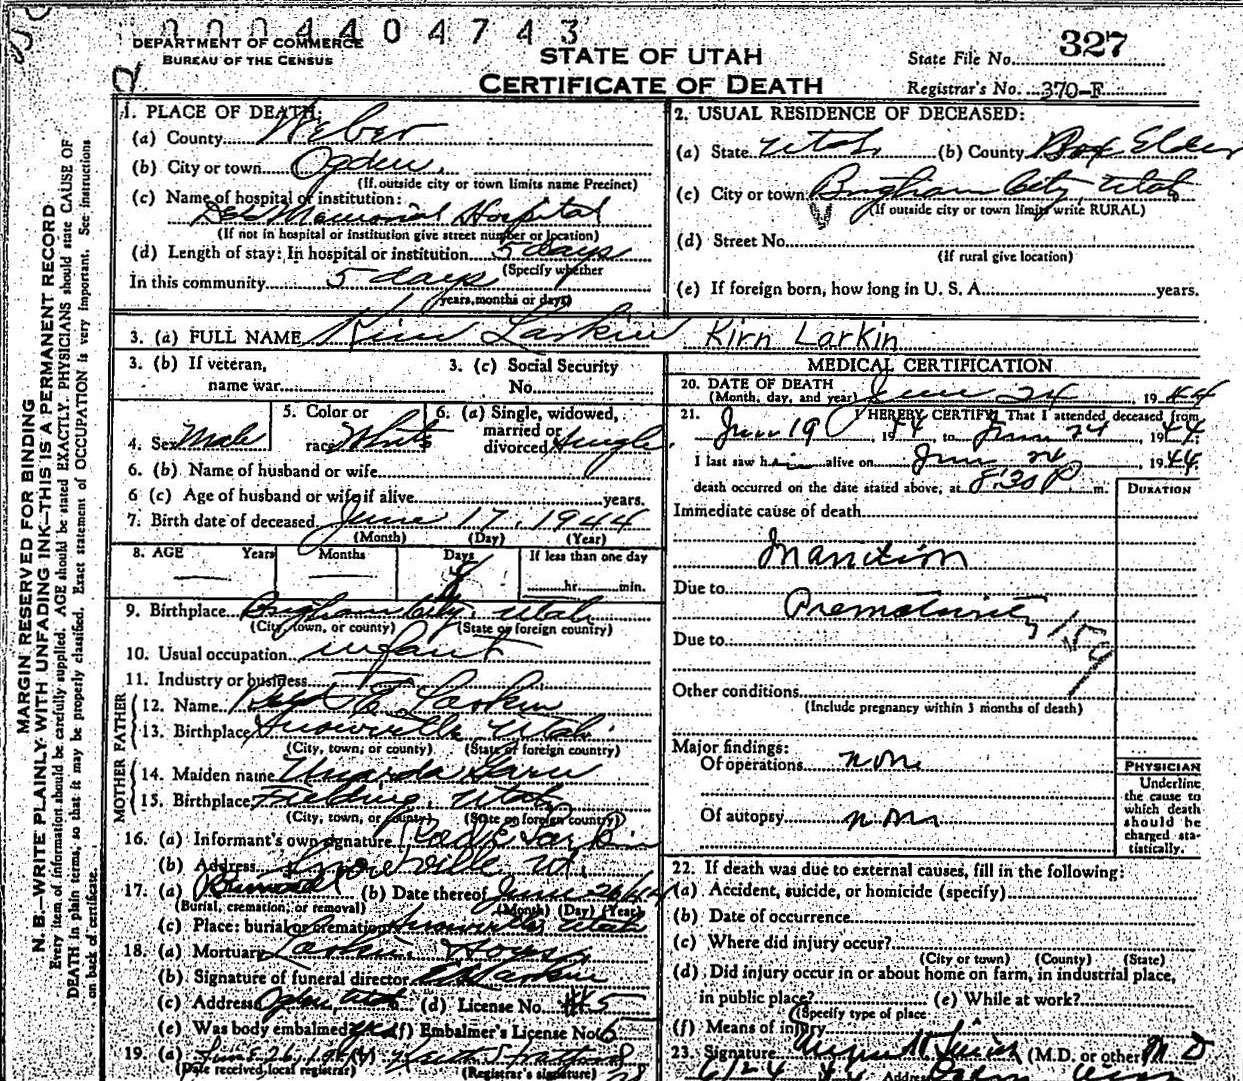 0004404743
DEPARTMENT OF COMMERCE
BUREAU OF THE CENSUS
STATE OF UTAH
CERTIFICATE OF DEATH
State File No. 327
Registrar's No. 370-F
MARGIN RESERVED FOR BINDING
N. B.—WRITE PLAINLY WITH UNFADING INK—THIS IS A PERMANENT RECORD
Every item of information should be carefully supplied. AGE should be stated EXACTLY. PHYSICIANS should state CAUSE OF
DEATH in plain terms, so that it may be properly classified. Exact statement of OCCUPATION is very important. See instructions
on back of certificate.
1. PLACE OF DEATH:
(a) County Weber
(b) City or town Ogden
(If outside city or town limits name Precinct)
(c) Name of hospital or institution:
Dee Memorial Hospital
(If not in hospital or institution give street number or location)
(d) Length of stay: In hospital or institution 5 days
(Specify whether
In this community 5 days
years, months or days)
2. USUAL RESIDENCE OF DECEASED:
(a) State Utah (b) County Box Elder
(c) City or town Brigham City Utah
(If outside city or town limits write RURAL)
(d) Street No.
(If rural give location)
(e) If foreign born, how long in U. S. A. years.
3. (a) FULL NAME Larkin Kirn Larkin
3. (b) If veteran,
name war
3. (c) Social Security
No.
4. Sex Male
5. Color or
race White
6. (a) Single, widowed,
married or
divorced Single
6. (b) Name of husband or wife
6 (c) Age of husband or wife if alive years.
7. Birth date of deceased June 17, 1944
(Month) (Day) (Year)
8. AGE Years Months Days If less than one day
hr. min.
9. Birthplace Brigham City, Utah
(City, town, or county) (State or foreign country)
10. Usual occupation infant
11. Industry or business
FATHER
12. Name E Larkin
13. Birthplace Snowville Utah
(City, town, or county) (State or foreign country)
MOTHER
14. Maiden name
15. Birthplace Fielding, Utah
(City, town, or county) (State or foreign country)
16. (a) Informant's own signature Larkin
(b) Address Snowville Ut.
17. (a) Burial (b) Date thereof June 26/44
(Burial, cremation, or removal) (Month) (Day) (Year)
(c) Place: burial or cremation Snowville Utah
18. (a) Mortuary Larkin
(b) Signature of funeral director Larkin
(c) Address Ogden, Utah (d) License No. #5
(e) Was body embalmed? (f) Embalmer's License No. 6
19. (a) June 26, 1944
(Date received, local registrar) (Registrar's signature)
MEDICAL CERTIFICATION
20. DATE OF DEATH
(Month, day, and year) June 24, 1944
21. I HEREBY CERTIFY, That I attended deceased from
June 19, 1944 to June 24, 1944.
I last saw him alive on June 24, 1944.
death occurred on the date stated above, at 8:30 P. m.
DURATION
Immediate cause of death
Inanition
Due to
Prematurity 159
Due to
Other conditions
(Include pregnancy within 3 months of death)
Major findings:
Of operations none
Of autopsy none
PHYSICIAN
Underline
the cause to
which death
should be
charged sta-
tistically.
22. If death was due to external causes, fill in the following:
(a) Accident, suicide, or homicide (specify)
(b) Date of occurrence
(c) Where did injury occur?
(City or town) (County) (State)
(d) Did injury occur in or about home on farm, in industrial place,
in public place? (e) While at work?
(Specify type of place
(f) Means of injury
23. Signature (M.D. or other) M D
6/24 44 Address